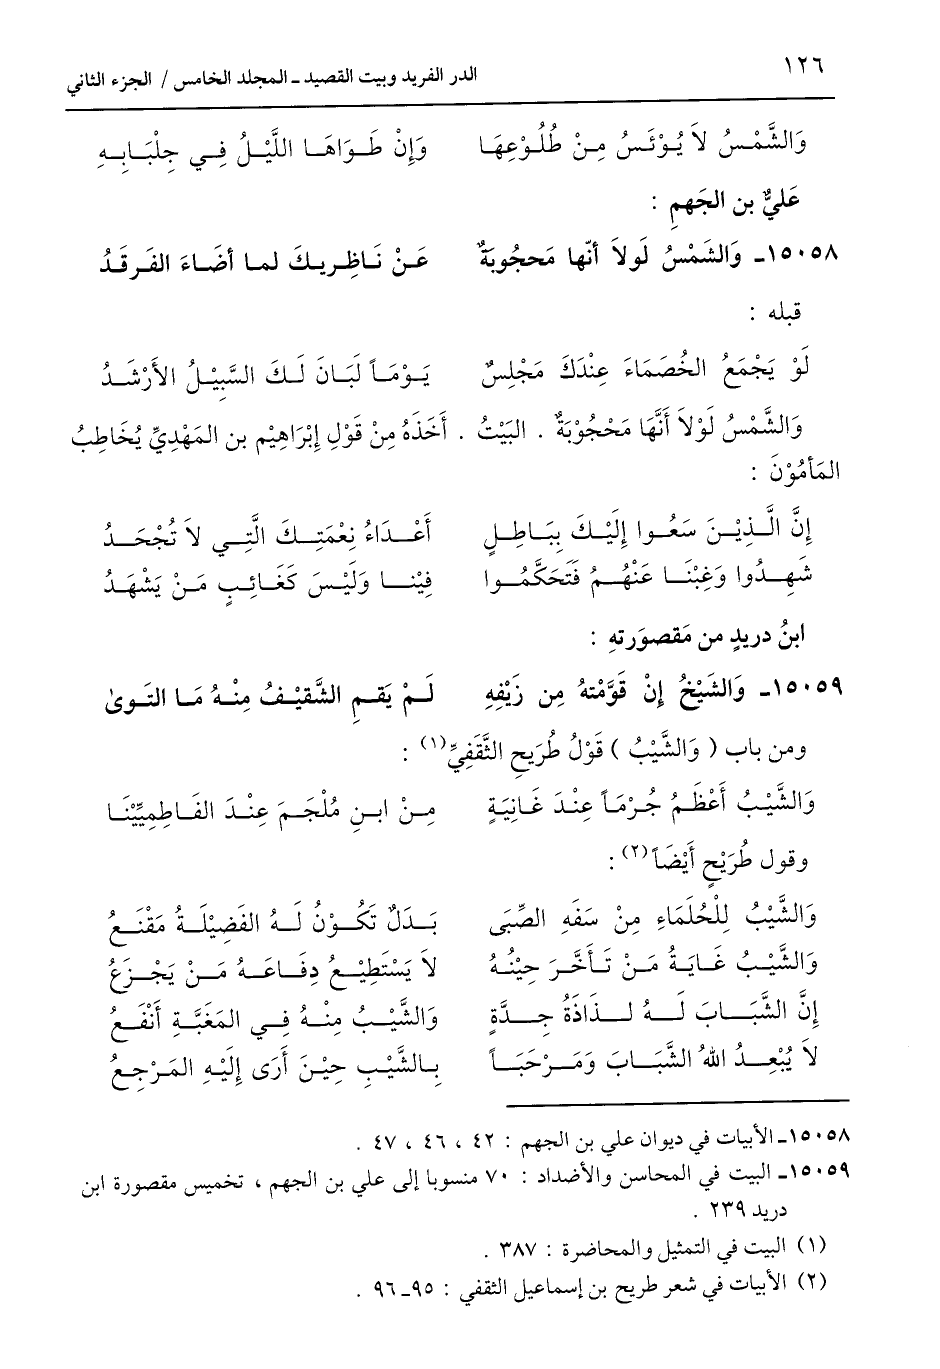 ١٢٦ الدر الفريد وبيت القصيد ـ المجلد الخامس / الجزء الثاني
وَالشَّمْسُ لاَ يُوْئَسُ مِنْ طُلُوْعِهَا وَإِنْ طَوَاهَا اللَّيْلُ فِي جِلْبَابِهِ
عَليٌّ بن الجَهمِ :
١٥٠٥٨ـ وَالشَمْسُ لَولاَ أنّها مَحجُوبَةٌ عَنْ نَاظِرِيكَ لما أضَاءَ الفَرقَدُ
قبله :
لَوْ يَجْمَعُ الخُصَمَاءَ عِنْدَكَ مَجْلِسٌ يَوْمَاً لَبَانَ لَكَ السَّبِيْلُ الأَرْشَدُ
وَالشَّمْسُ لَوْلاَ أَنَّهَا مَحْجُوْبَةٌ . البَيْتُ . أَخَذَهُ مِنْ قَوْلِ إِبْرَاهِيْمِ بن المَهْدِيِّ يُخَاطِبُ
المَأمُوْنَ :
إِنَّ الَّذِيْنَ سَعُوا إِلَيْكَ بِبَاطِلٍ أَعْدَاءُ نِعْمَتِكَ الَّتِي لاَ تُجْحَدُ
شَهِدُوا وَغِبْنَا عَنْهُمُ فَتَحَكَّمُوا فِيْنَا وَلَيْسَ كَغَائِبٍ مَنْ يَشْهَدُ
ابنُ دريدٍ من مَقصورَتهِ :
١٥٠٥٩ـ وَالشَيْخُ إِنْ قَوَّمْتهُ مِن زَيْفِهِ لَمْ يَقمِ الشَّقيْفُ مِنْهُ مَا التَوىٰ
ومن باب ( وَالشَّيْبُ ) قَوْلُ طُرَيحِ الثَّقَفِيِّ(١) :
وَالشَّيْبُ أَعْظَمُ جُرْمَاً عِنْدَ غَانِيَةٍ مِنْ ابنِ مُلْجَمَ عِنْدَ الفَاطِمِيِّيْنَا
وقول طُرَيْحٍ أَيْضَاً(٢) :
وَالشَّيْبُ لِلْحُلَمَاءِ مِنْ سَفَهِ الصِّبَى بَدَلٌ تَكُوْنُ لَهُ الفَضِيْلَةُ مَقْنَعُ
وَالشَّيْبُ غَايَةُ مَنْ تَأَخَّرَ حِيْنُهُ لاَ يَسْتَطِيْعُ دِفَاعَهُ مَنْ يَجْزَعُ
إِنَّ الشَّبَابَ لَهُ لَذَاذَةُ جِدَّةٍ وَالشَّيْبُ مِنْهُ فِي المَغَبَّةِ أَنْفَعُ
لاَ يُبْعِدُ اللهُ الشَّبَابَ وَمَرْحَبَاً بِالشَّيْبِ حِيْنَ أَرَى إِلَيْهِ المَرْجِعُ
١٥٠٥٨ـ الأبيات في ديوان علي بن الجهم : ٤٢ ، ٤٦ ، ٤٧ .
١٥٠٥٩ـ البيت في المحاسن والأضداد : ٧٠ منسوبا إلى علي بن الجهم ، تخميس مقصورة ابن
دريد ٢٣٩ .
(١) البيت في التمثيل والمحاضرة : ٣٨٧ .
(٢) الأبيات في شعر طريح بن إسماعيل الثقفي : ٩٥ـ٩٦ .